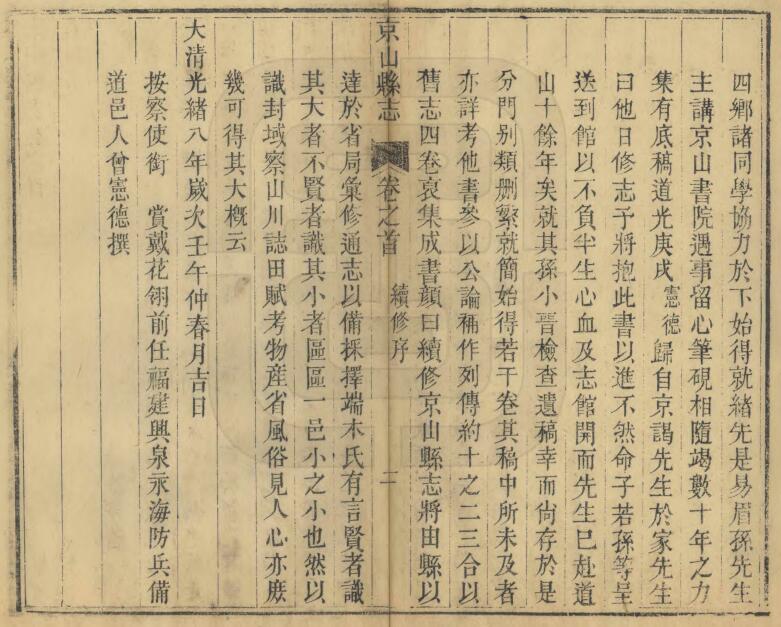 四鄉諸同學協力於下始得就緒先是易眉孫先生
主講京山書院遇事留心筆硯相隨竭數十年之力
集有底稿道光庚戌憲德歸自京謁先生於家先生
曰他日修志予將抱此書以進不然命子若孫等呈
送到館以不負半生心血及志館開而先生已赴道
山十餘年矣就其孫小晉檢查遺稿幸而尙存於是
分門别類刪繁就簡始得若干卷其稿中所未及者
亦詳考他書參以公論補作列傳約十之二三合以
舊志四卷裒集成書顏曰續修京山縣志將由縣以
京山縣志 卷之首 續修序 二
達於省局彙修通志以備採擇端木氏有言賢者識
其大者不賢者識其小者區區一邑小之小也然以
識封域察山川誌田賦考物産省風俗見人心亦庶
幾可得其大槪云
大清光緒八年歲次壬午仲春月吉日
按察使銜 賞戴花翎前任福建興泉永海防兵備
道邑人曾憲德撰